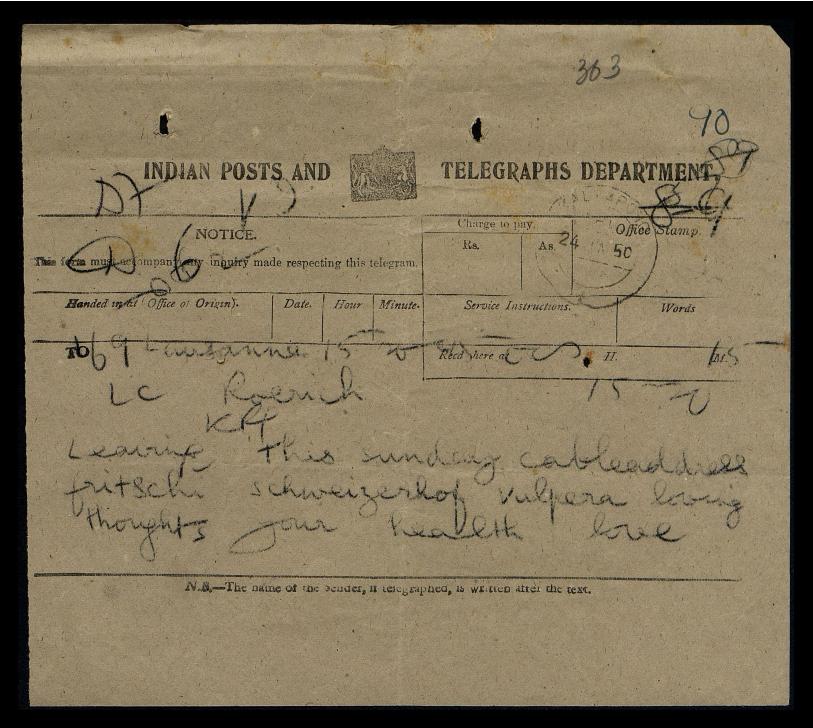 363
90
INDIAN POSTS AND TELEGRAPHS DEPARTMENT.
NOTICE.
This form must accompany any inquiry made respecting this telegram.
Charge to pay.
Rs. As.
Office Stamp.
24 50
Handed in at (Office of Origin). Date. Hour Minute. Service Instructions. Words
TO 69 Lausanne 15 Recd here at H. M.
15
LC Roerich
15
KPG
Leaving this sunday cableaddress
fritschi schweizerhof vulpera loving
thoughts your health love
N.B.—The name of the sender, if telegraphed, is written after the text.